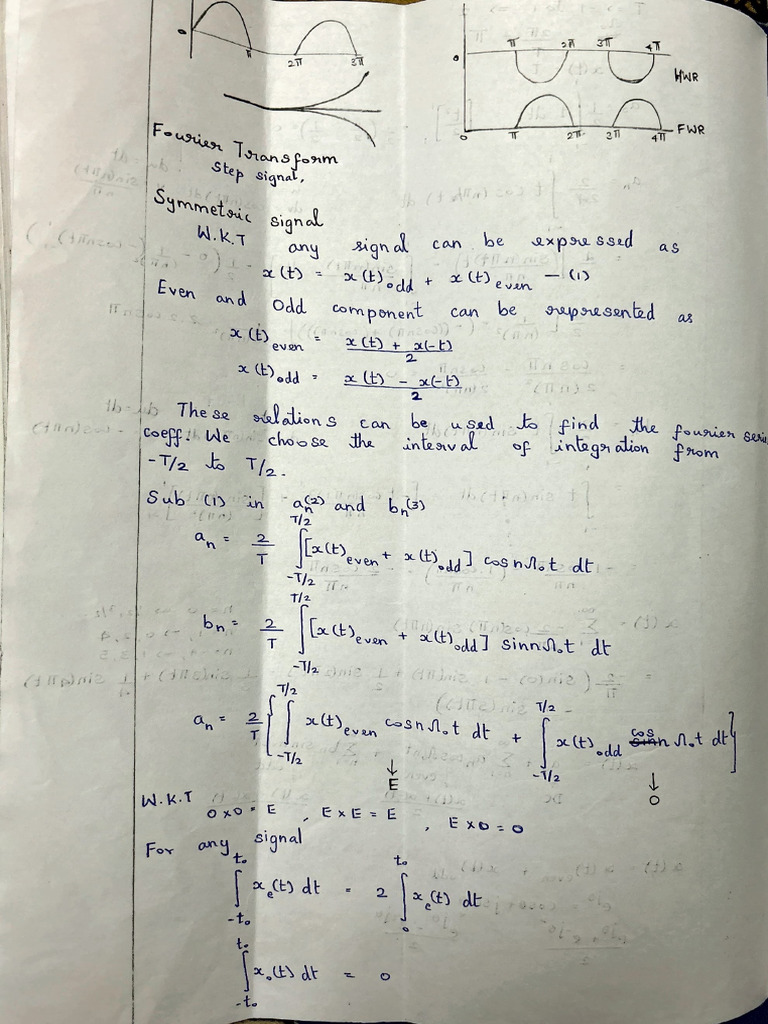 0 π 2π 3π
0 π 2π 3π 4π HWR
0 π 2π 3π 4π FWR
Fourier Transform
Step signal,
Symmetric signal
W.K.T any signal can be expressed as
x(t) = x(t)odd + x(t)even — (1)
Even and Odd component can be represented as
x(t)even = x(t) + x(-t) / 2
x(t)odd = x(t) - x(-t) / 2
These relations can be used to find the fourier serie
coeff. We choose the interval of integration from
-T/2 to T/2.
Sub (1) in an(2) and bn(3)
an = 2/T ∫_{-T/2}^{T/2} [x(t)even + x(t)odd] cosnΩ₀t dt
bn = 2/T ∫_{-T/2}^{T/2} [x(t)even + x(t)odd] sinnΩ₀t dt
an = 2/T { ∫_{-T/2}^{T/2} x(t)even cosnΩ₀t dt + ∫_{-T/2}^{T/2} x(t)odd cos nΩ₀t dt }
↓ E ↓ O
W.K.T
O×O = E , E×E = E , E×O = O
For any signal
∫_{-t₀}^{t₀} xe(t) dt = 2 ∫_{0}^{t₀} xe(t) dt
∫_{-t₀}^{t₀} xo(t) dt = 0